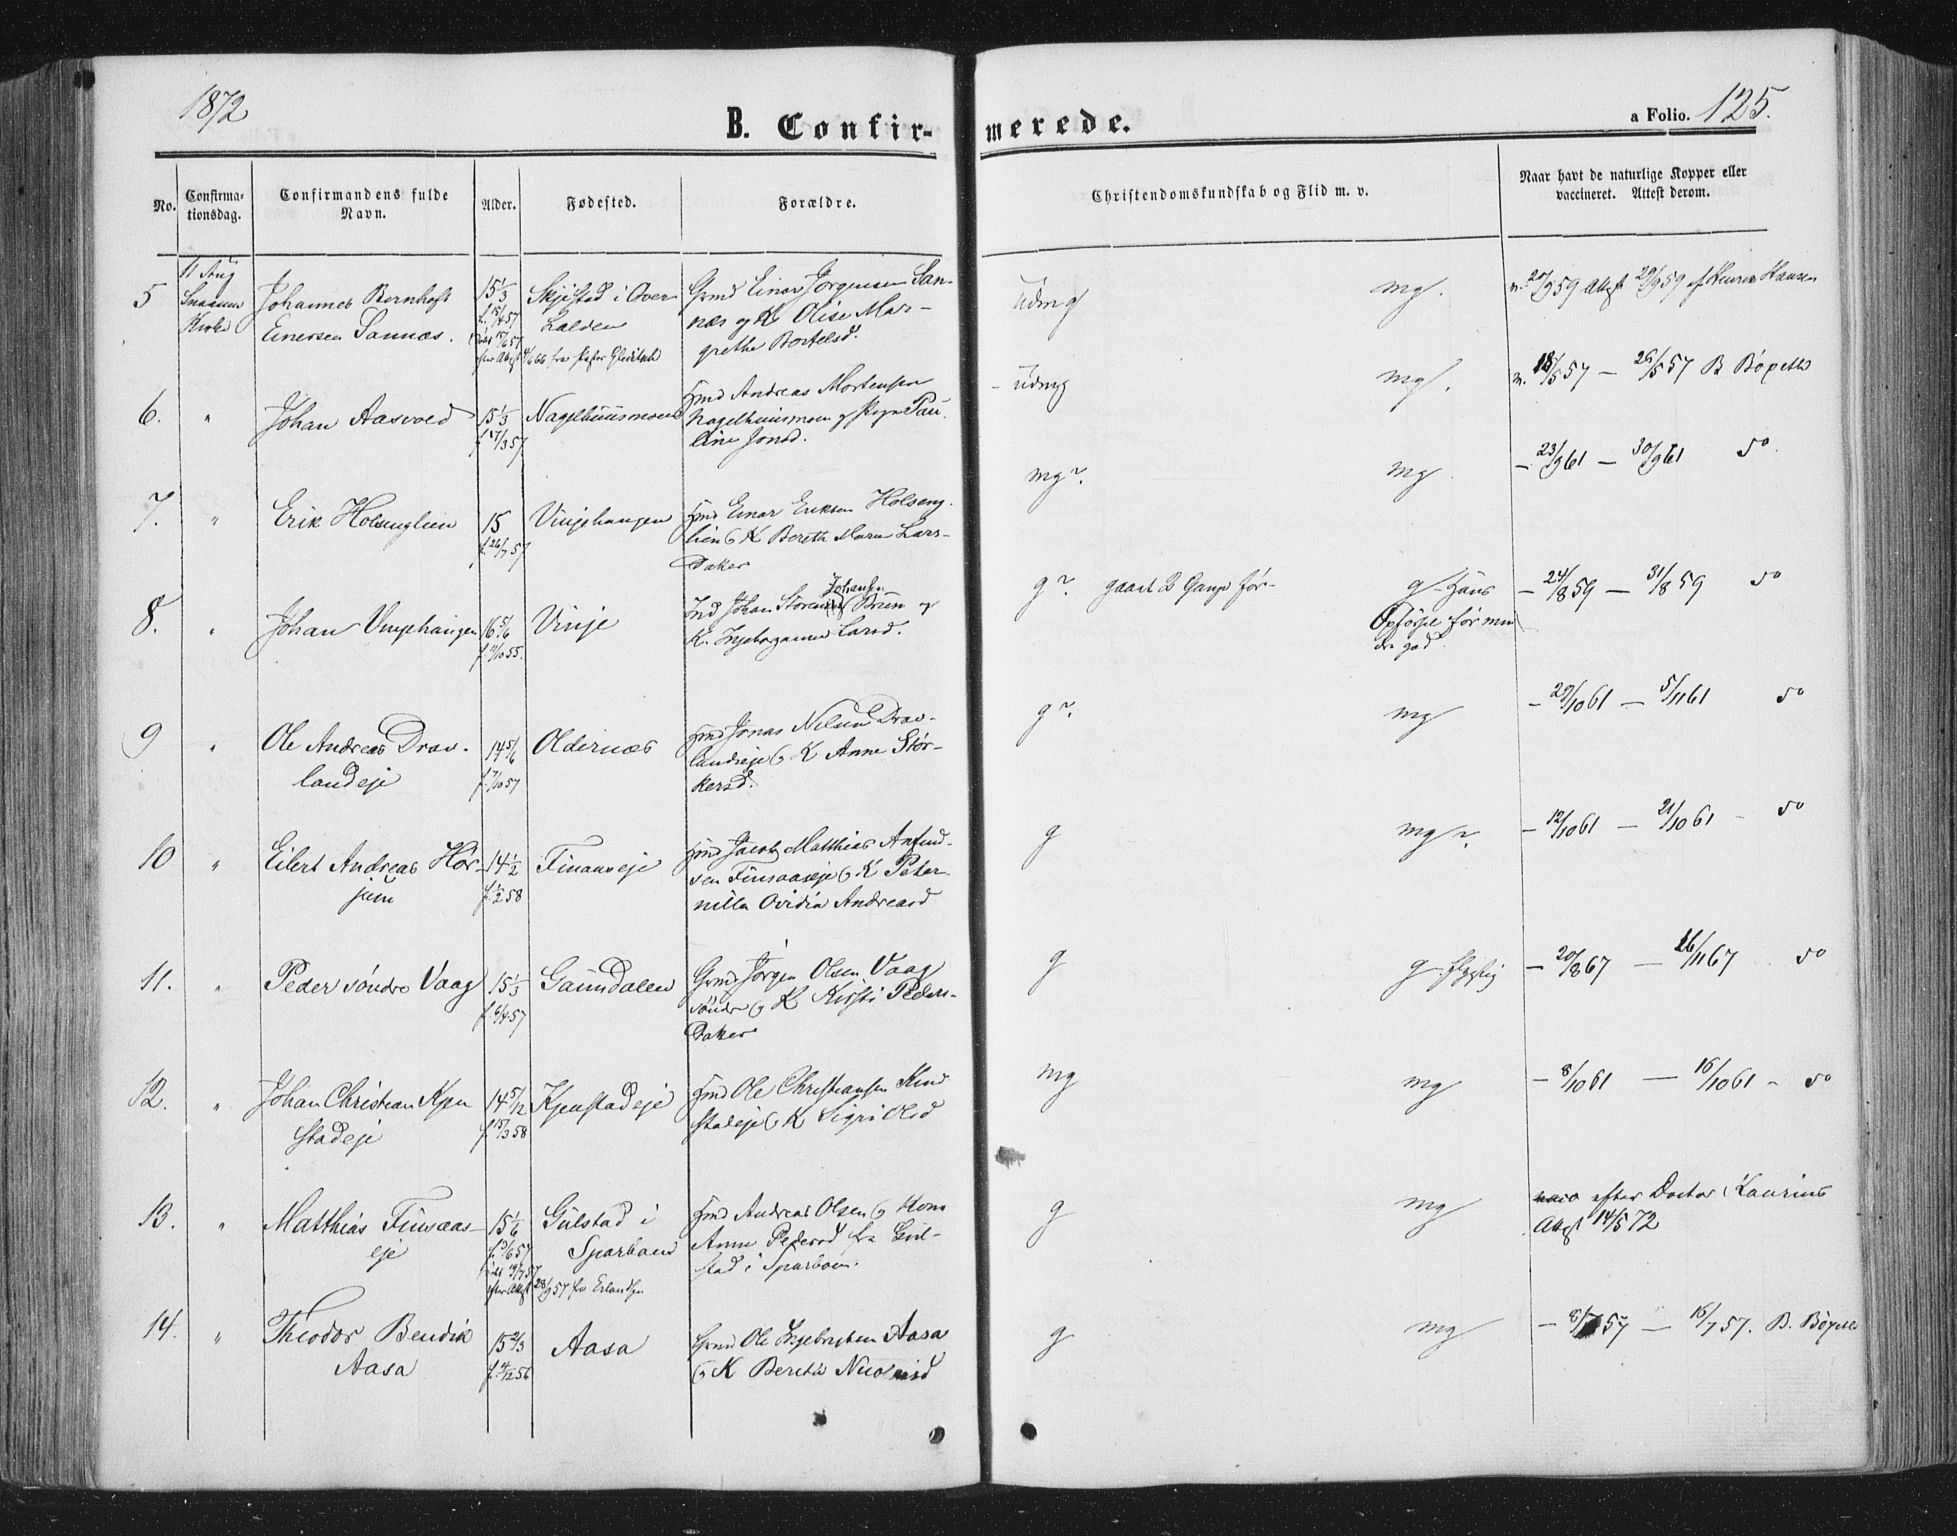 1872
B. Confirmerede.
a Folio. 125.
No.
Confirmationsdag.
Confirmandens fulde Navn.
Alder.
Fødested.
Forældre.
Christendomskundskab og Flid m. v.
Naar havt de naturlige Kopper eller vaccineret. Attest derom.
5
11 Aug
Johannes Bernhoft
Einersen Sannæs.
15 1/3
Skjefstad i Over
Halden
Gmd Einar Jørgensen San-
næs og K Olise Mar-
grethe Bertelsd.
udmg
mg.
20/9 59 Attest 29/9 59 af Henrik Hansen
6.
"
Johan Aasvold
15 1/3
f. 17/3 57
Nagelhuusmoen
Hmd Andreas Mortensen
Nagelhuusmoen og Pige Pau-
line Jonsd.
udmg
mg.
v. 18/5 57 — 26/5 57 B
7.
"
Erik Holsenglien
15
f. 26/7 57
Vinjehaugen
Hmd Einar Eriksen Holseng-
lien og K Bereth Maria Lars-
Datter
mg?
mg
— 23/9 61 — 30/9 61 do
8.
"
Johan Vinjehaugen
16 5/6
f. 11/10 55.
Vinje
Johan
K. Larsd.
g? gaaet 2 Gange før-
g Hans
Opførsel før min
dre god.
— 24/8 59 — 31/8 59 do
9
"
Ole Andreas Drav-
landeje
14 5/6
f. 7/10 57
Oldernæs
Hmd Jonas Nilsen Drav-
landseje og K Anne Stor-
kersd.
g?
mg
— 29/10 61 — 5/11 61 do
10
"
Eilert Andreas Hør-
jem
14 1/2
f. 1/2 58
Finsaaseje
Hmd Jacob Matthias Anfind-
sen Finsaaseje og K Peter-
nilla Ovidia Andreasd
g
mg?
— 12/10 61 — 21/10 61 - do
11.
"
Peder søndre Vaag
15 1/3
f. 6/4 57
Gaundalen
Gmd Jørgen Olsen Vaag
søndre og K Kirsti Peders-
Datter
g
g flygtig
— 20/8 67 — 26/11 67 do
12.
"
Johan Christian Kjen
stadeje
14 5/12
f. 15/3 58
Kjenstadeje
Hmd Ole Christiansen Kin
stadeje og K Sigri Olsd
mg
mg
— 8/10 61 — 16/10 61 - do
13.
"
Matthias Finsaas-
eje
15 1/6
f. 3/6 57
Gulstad i
Sparboen
Hmd Andreas Olsen og Kone
Anne Pedersd fra Gul-
stad i Sparboen.
g
mg
efter Doctor Kaurins
Attest 14/5 72
14.
"
Theodor Bendik
Aasa
15 2/3
f. 4/12 56
Aasa
Gmd Ole Ingebrigtsen Aasa
og K Beretha
g
mg
— 8/7 57 — 16/7 57. B.